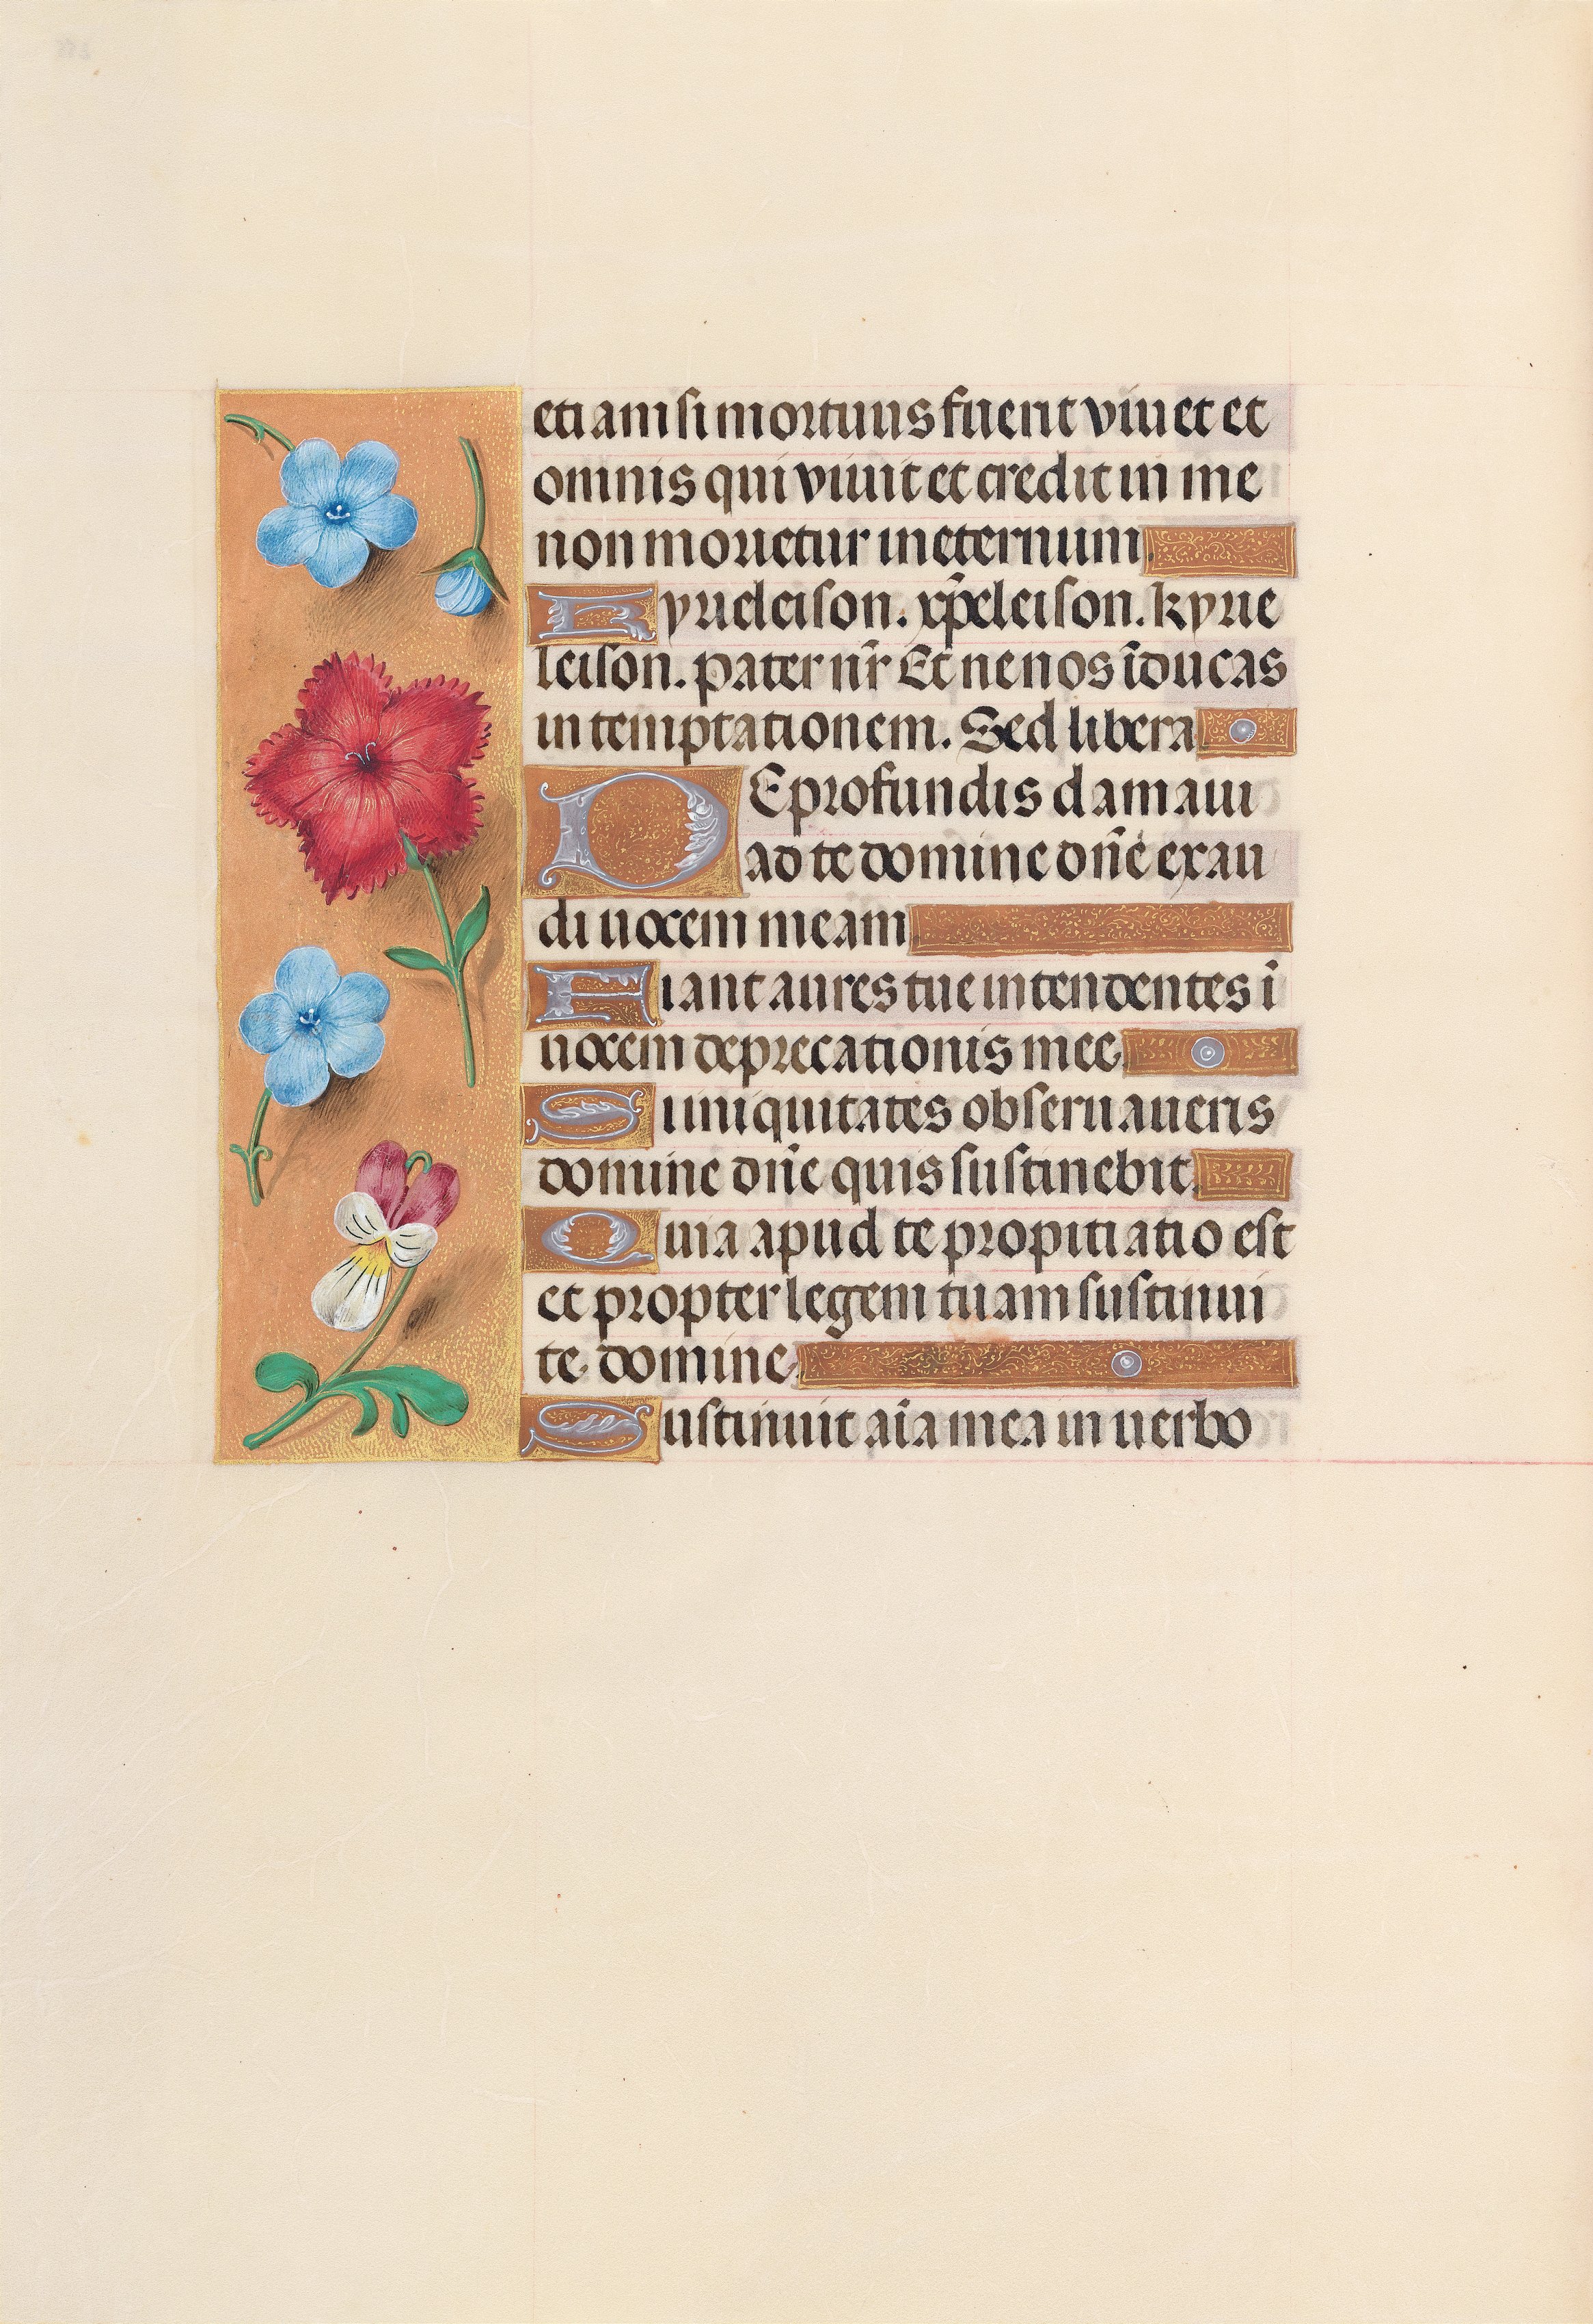 etiam si mortuus fuerit viuet et
omnis qui viuit et credit in me
non morietur in eternum
Kyrieleison. xp̄eleison. kyrie
leison. pater nr̄ Et ne nos īducas
in temptationem. Sed libera
DE profundis clamaui
ad te domine dn̄e exau
di uocem meam
Fiant aures tue intendentes ī
uocem deprecationis mee
Si iniquitates obseruaueris
domine dn̄e quis sustinebit
Quia apud te propitiatio est
et propter legem tuam sustinui
te domine
Sustinuit aīa mea in uerbo